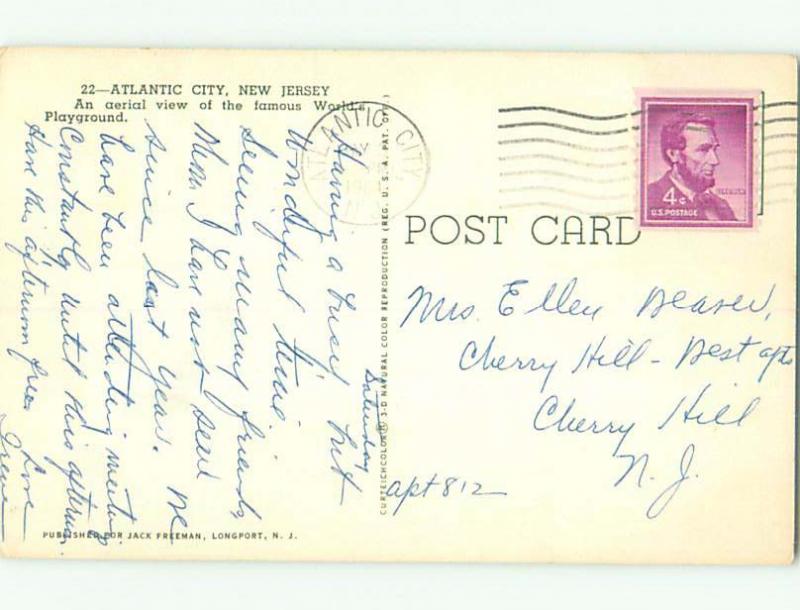 22—ATLANTIC CITY, NEW JERSEY
An aerial view of the famous World's
Playground.
Saturday
Having a busy but
Wonderful time.
Seeing many friends
I have not seen
since last year. We
have been attending meetings
Constantly until this afternoon.
Have this afternoon free
Love
ATLANTIC CITY
N.J.
CURTEICHCOLOR® 3-D NATURAL COLOR REPRODUCTION (REG. U. S. A. PAT. OFF.)
4¢
LINCOLN
U.S. POSTAGE
POST CARD
Mrs. Ellen Beaver,
Cherry Hill - Best apts
Cherry Hill
N. J.
apt 812
PUBLISHED FOR JACK FREEMAN, LONGPORT, N. J.